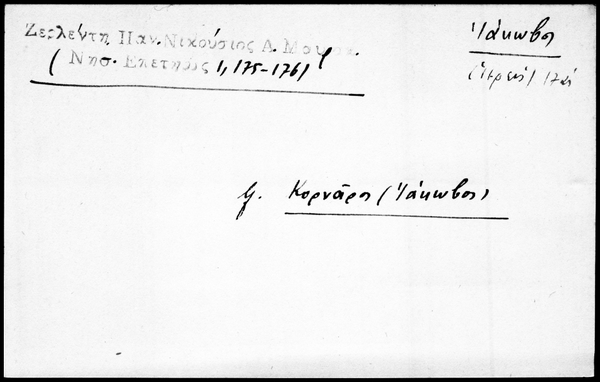 Ζερλέντη Παν. Νικούσιος Α. Μουρικ.
(Νησ. Επετηρίς 1, 175-176)
Ἰάκωβος
(ἱερεὺς) 17
βλ. Κορνᾶρος (Ἰάκωβος)